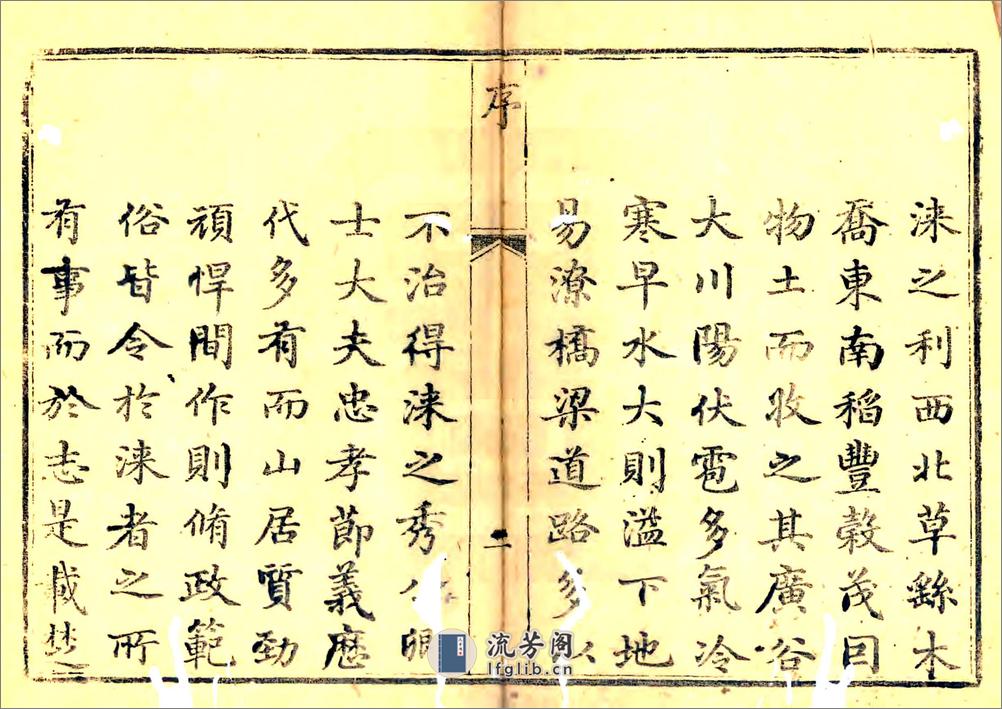 淶之利西北草繇木
喬東南稻豐穀茂因
物土而收之其廣谷
大川陽伏雹多氣冷
寒早水大則溢下地
易潦橋梁道路多以
序
二
不治得淶之秀公卿
士大夫忠孝節義歷
代多有而山居質勁
頑悍間作則脩政範
俗皆令於淶者之所
有事而於志是載
流芳阁
lfglib.cn